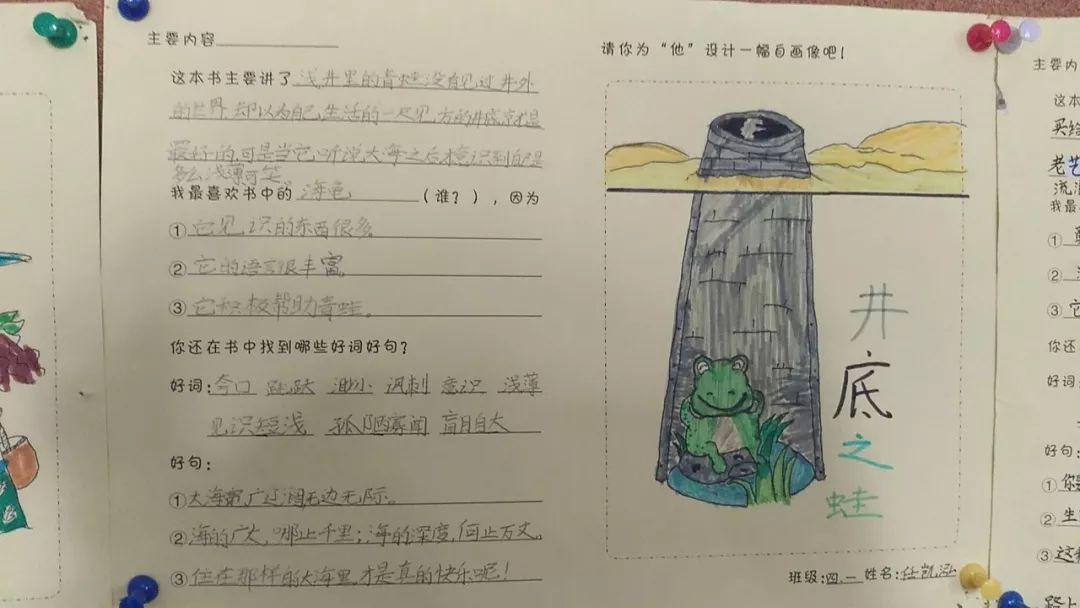 主要内容
这本书主要讲了浅井里的青蛙没有见过井外
的世界,却以为自己生活的一尺见方的井底就是
最好的,可是当它听说大海之后才意识到自己是
多么浅薄可笑。
我最喜欢书中的海龟(谁?),因为
①它见识的东西很多
②它的语言很丰富
③它积极帮助青蛙。
你还在书中找到哪些好词好句?
好词:夸口 跳跃 渺小 讽刺 意识 浅薄
见识短浅 孤陋寡闻 盲目自大
好句:
①大海广辽阔无边无际。
②海的广大,哪止千里;海的深度,何止万丈。
③住在那样的大海里,才是真的快乐呢!
请你为“他”设计一幅自画像吧!
井
底
之
蛙
班级:四.一 姓名:任凯泓
主要内
这本
买给
老艺
流浪
我最
①
②
③它
你还
好词
好句:
①你
②生
③这